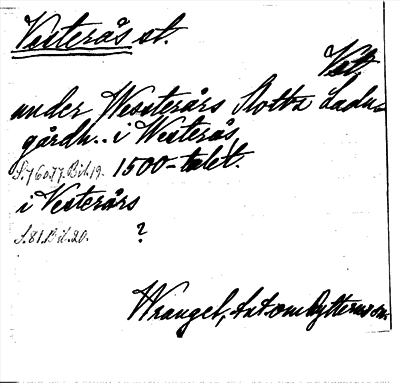 Vesterås st.
Vstl.
under Wessterårs Slotts Ladu=
gårdh.. i Westerås,
S.76o.77.Bil.19. 1500-talet.
i Vesterårs
S.81.Bil.20. ?
Wrangel,